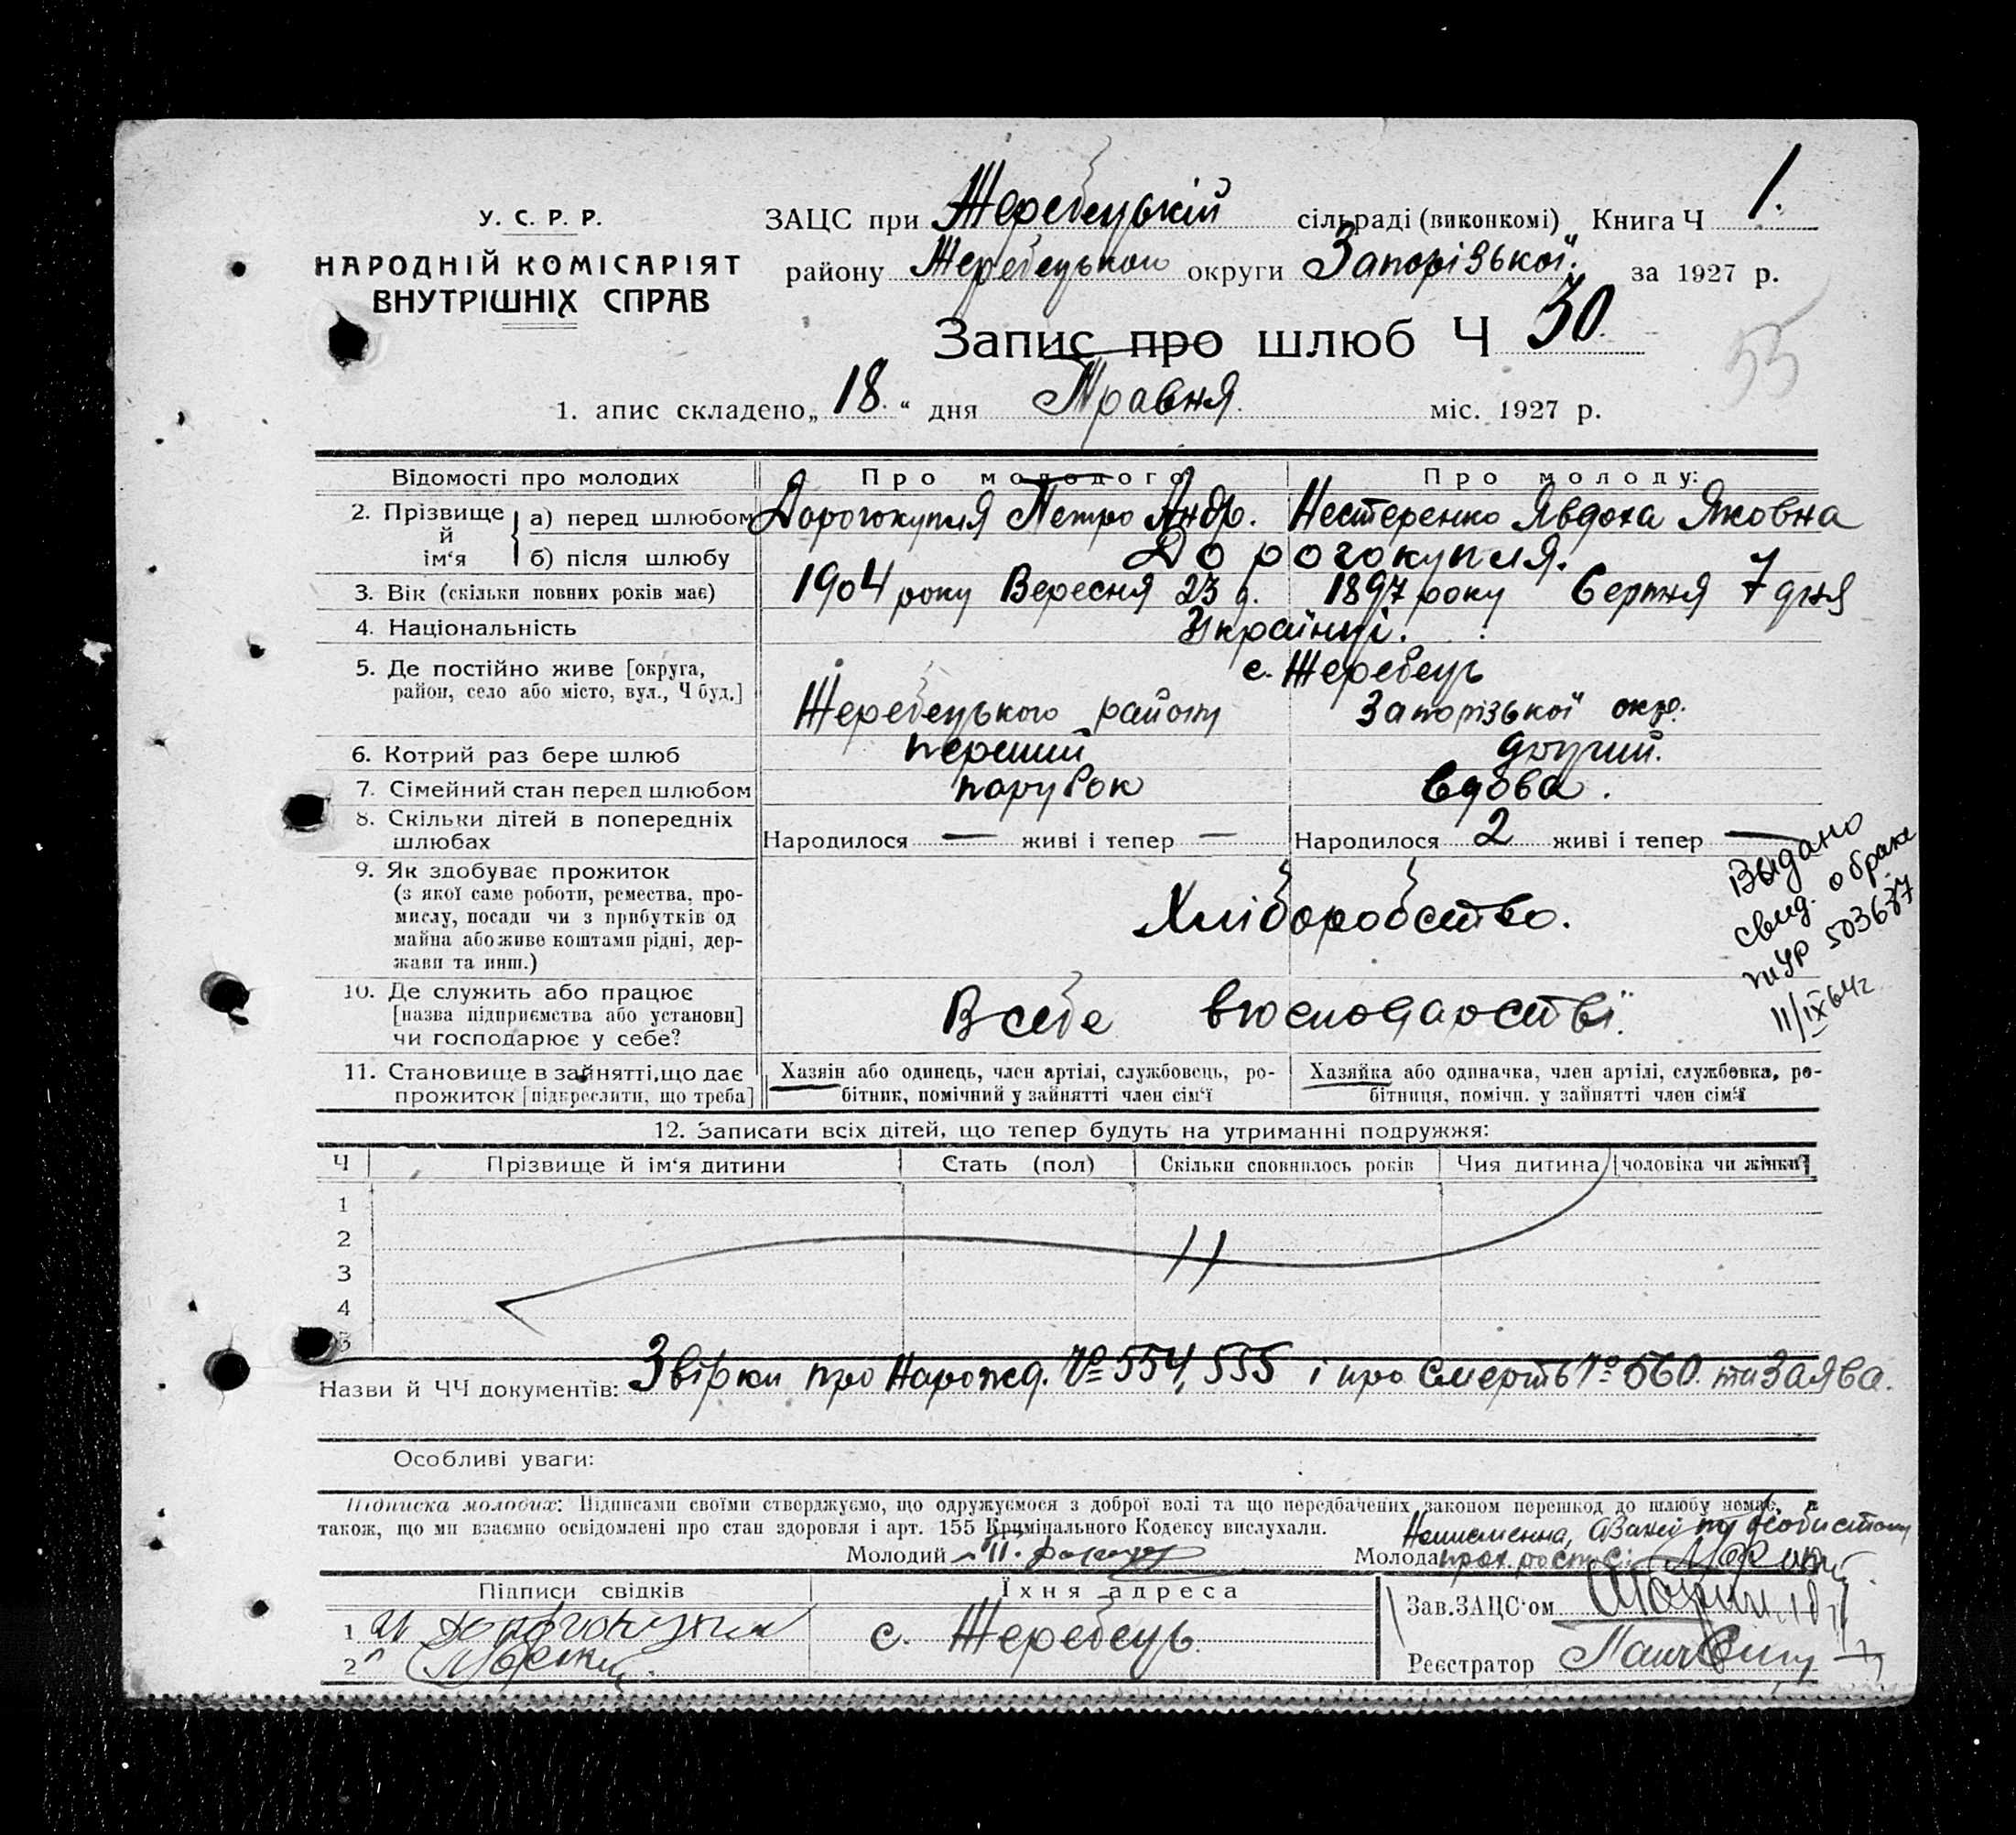 У. С. Р. Р.
НАРОДНІЙ КОМІСАРІЯТ
ВНУТРІШНІХ СПРАВ
ЗАЦС при Жеребецькій сільраді (виконкомі) Книга Ч 1.
району Жеребецького округи Запорізької. за 1927 р.
Запис про шлюб Ч 30.
55
1. апис складено „18.“ дня Травня. міс. 1927 р.
Відомості про молодих Про молодого Про молоду:
2. Прізвище й ім‘я
а) перед шлюбом Дорогокупля Петро Андр. Нестеренко Явдоха Яковна
б) після шлюбу Дорогокупля.
3. Вік (скільки повних років має) 1904 року Вересня 23 д. 1897 року Серпня 7 дня
4. Національність Українці.
5. Де постійно живе [округа, с. Жеребець
район, село або місто, вул., Ч буд.] Жеребецького району Запорізької окр.
6. Котрий раз бере шлюб перший другий.
7. Сімейний стан перед шлюбом парубок вдова.
8. Скільки дітей в попередніх
шлюбах Народилося — живі і тепер — Народилося 2 живі і тепер —
9. Як здобуває прожиток
(з якої саме роботи, ремества, про-
мислу, посади чи з прибутків од
майна або живе коштами рідні, дер-
жави та инш.) Хліборобство.
Выдано
свид. о браке
503637
11/IX 64г
10. Де служить або працює
[назва підприємства або установи]
чи господарює у себе? В себе вгосподарстві.
11. Становище в зайнятті, що дає
прожиток [підкреслити, що треба]
Хазяїн або одинець, член артілі, службовець, ро-
бітник, помічний у зайнятті член сім‘ї
Хазяйка або одиначка, член артілі, службовка, ро-
бітниця, помічн. у зайнятті член сім‘ї
12. Записати всіх дітей, що тепер будуть на утриманні подружжя:
Ч Прізвище й ім‘я дитини Стать (пол) Скільки сповнилось років Чия дитина [чоловіка чи жінки]
1
2
3
4
5
Назви й ЧЧ документів: Звірки про Нарожд. № 554, 555 і про Смерть № 560. та Заява.
Особливі уваги:
Підписка молодих: Підписами своїми стверджуємо, що одружуємося з доброї волі та що передбачених законом перешкод до шлюбу немає, а
також, що ми взаємно освідомлені про стан здоровля і арт. 155 Кримінального Кодексу вислухали.
Неписьменна,
Молодий Молода
Підписи свідків Їхня адреса
1 с. Жеребець.
2
Зав. ЗАЦС‘ом
Реєстратор